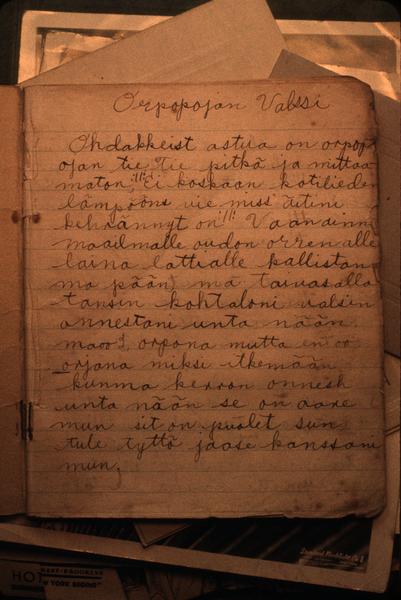 Orpopojan Valssi
Ohdakkeist astua on orpop
ojan tie, tie pitkä ja mittaa
maton, :||: Ei koskaan kotilieden
lämpööns vie miss äitini
kehrännyt on :||: Vaan ainn
maailmalle oudon orren alle
laina lattialle kallistan
ma pään, mä taivasalla
tansin kohtaloni valsin
onnestani unta nään
orpona mutta en oo
orjana miksi itkemään
kunma kerron onnesh
unta nään se on aare
mun sit on puolet sun
tule tyttö jaase kanssani
mun.
HOT
EAST-BROOKLYN